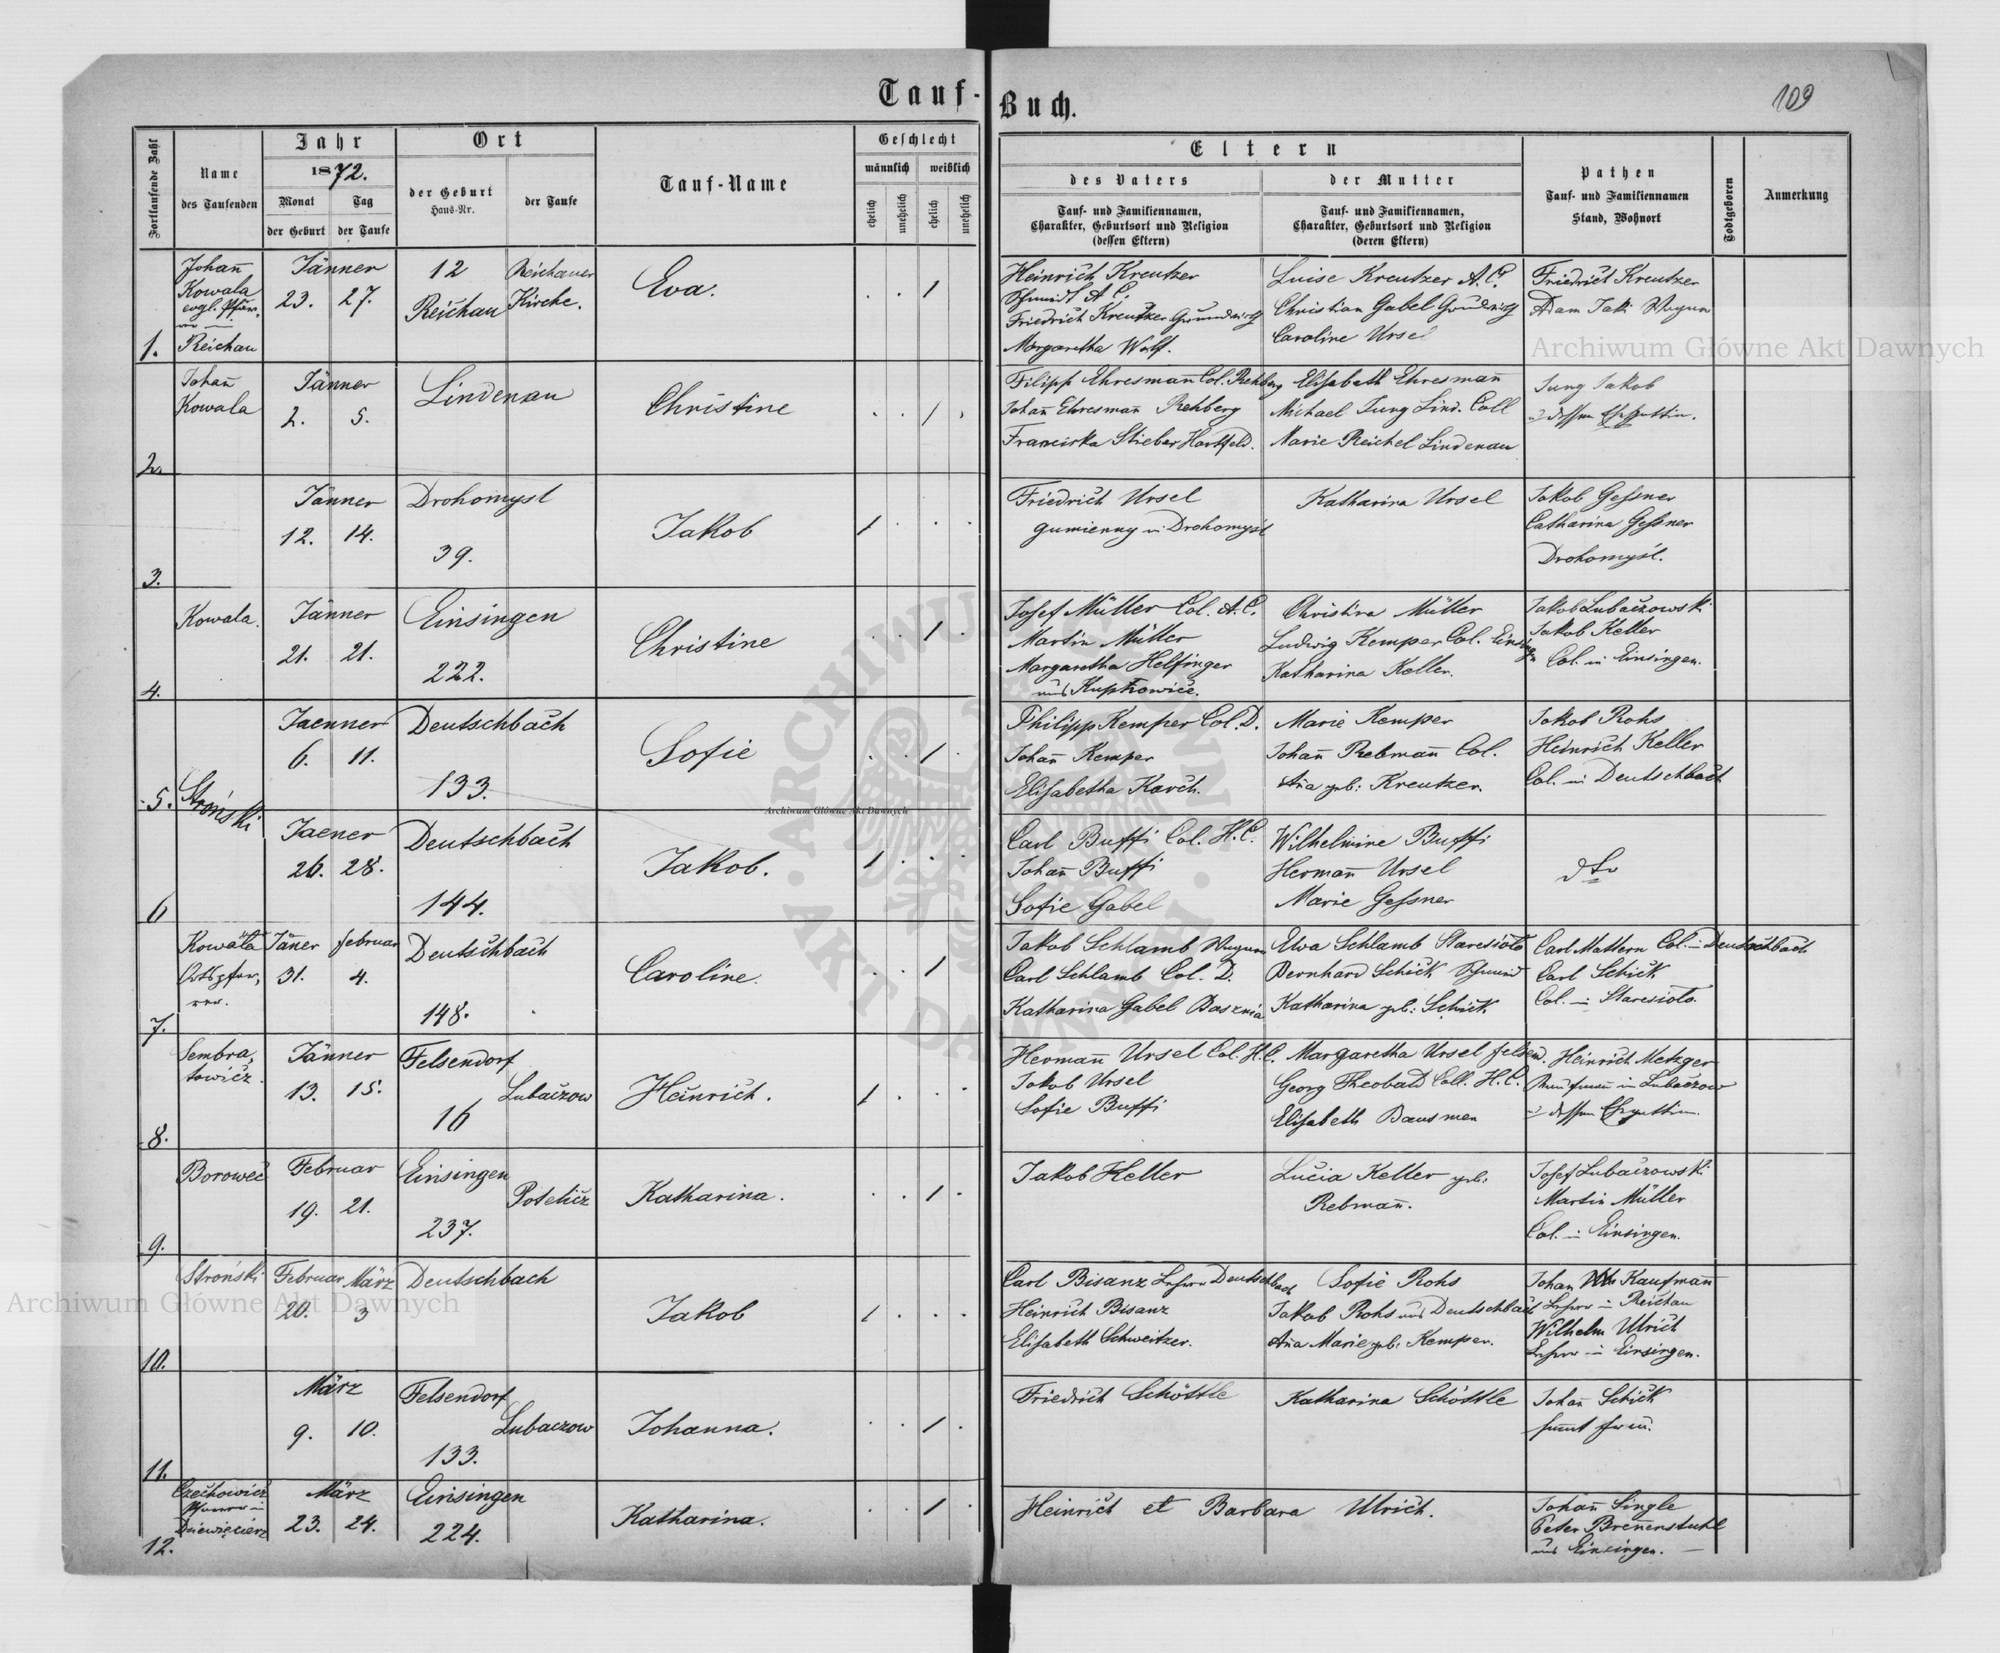 Tauf-Buch.
109
Fortlaufende Zahl
Name
des Taufenden
Jahr
1872.
Monat
Tag
der Geburt
der Taufe
Ort
der Geburt
Haus-Nr.
der Taufe
Tauf-Name
Geschlecht
männlich
weiblich
ehelich
unehelich
ehelich
unehelich
Eltern
des Vaters
Tauf- und Familiennamen,
Charakter, Geburtsort und Religion
(dessen Eltern)
der Mutter
Tauf- und Familiennamen,
Charakter, Geburtsort und Religion
(deren Eltern)
Pathen
Tauf- und Familiennamen
Stand, Wohnort
Todtgeboren
Anmerkung
1.
Johañ
Kowala
evgl. Pfar-
rer in
Reichau
Jänner
23. 27.
12
Reichau
Reichauer
Kirche.
Eva.
Heinrich Kreutzer
Schmidt A.C.
Friedrich Kreutzer Grundwirth
Margaretha Wolf.
Luise Kreutzer A.C.
Christian Gabel Grundwirth
Caroline Ursel
Friedrich Kreutzer
Adam Jaki
2.
Johañ
Kowala
Jänner
2. 5.
Lindenau
Christine
Filipp Ehresmañ Col. Rehberg
Johañ Ehresman Rehberg
Franciska Stieber Hartfeld.
Elisabeth Ehresmañ
Michael Jung Lind. Coll
Marie Reichel Lindenau
Jung Jakob
u dessen Ehegattin.
3.
Jänner
12. 14.
Drohomysl
39.
Jakob
Friedrich Ursel
gumienny in Drohomysl
Katharina Ursel
Jakob Gessner
Catharina Gessner
Drohomyśl.
4.
Kowala.
Jänner
21. 21.
Einsingen
222.
Christine
Josef Müller Col. A.C.
Martin Müller
Margaretha Helfinger
aus
Christina Müller
Ludwig Kemper Col. Einsingen
Katharina Keller.
Jakob Lubaczowski
Jakob Keller
Col. in Einsingen.
5.
Stroński
Jaenner
6. 11.
Deutschbach
133.
Sofie
Philipp Kemper Col. D.
Johañ Kemper
Elisabetha Karch.
Marie Kemper
Johañ Rebmañ Col.
Aña geb: Kreutzer.
Jakob Rohs
Heinrich Keller
Col. in Deutschbach
6
Jaener
26. 28.
Deutschbach
144.
Jakob.
Carl Buffi Col. H.C.
Johañ Buffi
Sofie Gabel
Wilhelmine Buffi
Hermañ Ursel
Marie Gessner
dto
7.
Kowala
Ortspfar-
rer.
Jäner Februar
31. 4.
Deutschbach
148.
Caroline.
Jakob Schlamb
Carl Schlamb Col. D.
Katharina Gabel Basznia
Ewa Schlamb Staresioło
Bernhard Schick Schmid
Katharina geb: Schick
Carl Mattern Col. in Deutschbach
Carl Schick
Col. in Staresioło.
8.
Sembra-
towicz
Jänner
13. 15.
Felsendorf
16
Lubaczow
Heinrich.
Hermañ Ursel Col. H.C.
Jakob Ursel
Sofie Buffi
Margaretha Ursel Felsend.
Georg Theobald Coll. H.C.
Elisabeth Bausmen
Heinrich Metzger
Kaufman in Lubaczow
u dessen Ehegattin.
9.
Borowec
Februar
19. 21.
Einsingen
237.
Potelicz
Katharina.
Jakob Keller
Lucia Keller geb.
Rebmañ.
Josef Lubaczowski
Martin Müller
Col. in Einsingen.
10.
Stroński
Februar März
20. 3
Deutschbach
Jakob
Carl Bisanz Lehrer Deutschbach
Heinrich Bisanz
Elisabeth Schweitzer.
Sofie Rohs
Jakob Rohs aus Deutschbach
Aña Marie geb: Kemper.
Johan Kaufmañ
Lehrer in Reichau
Wilhelm Ulrich
Lehrer in Einsingen.
11.
März
9. 10.
Felsendorf
133.
Lubaczow
Johanna.
Friedrich Schöttle
Katharina Schöttle
Johañ Schick
sammt Frau.
12.
Czechowicz
Pfarrer in
Dziewięcierz
März
23. 24.
Einsingen
224.
Katharina.
Heinrich et Barbara Ulrich.
Johañ Single
Peter Breñenstuhl
aus Einsingen.
Archiwum Główne Akt Dawnych
Archiwum Główne Akt Dawnych
Archiwum Główne Akt Dawnych